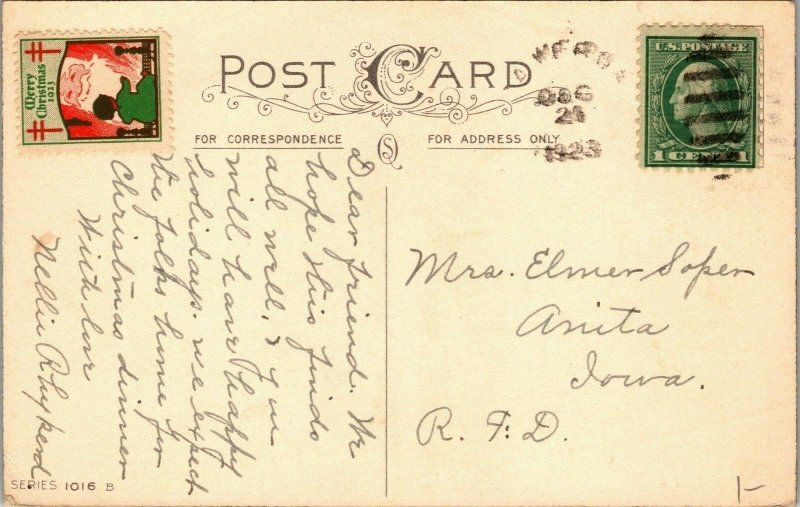 Merry
Christmas
1923
POST CARD
FOR CORRESPONDENCE
FOR ADDRESS ONLY
DEC
24
1923
U.S. POSTAGE
1 CENT 1
Dear friend. We
hope this finds
all well, & you
will have happy
holidays. we expect
the folks home for
Christmas dinner
With love
Nellie
Mrs. Elmer Soper
Anita
Iowa.
R.F.D.
SERIES 1016 B
1-